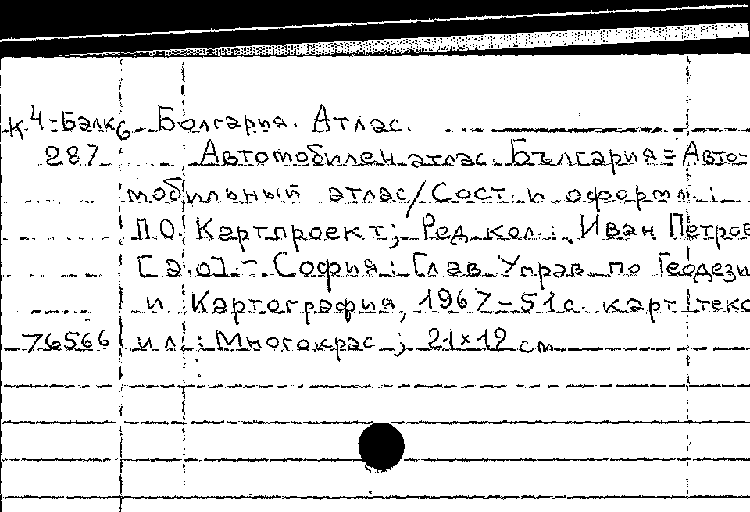 К4-Балк6 Болгария. Атлас.
287 Автомобилен атлас. България = Авто-
мобильный атлас/Сост. и оформл.:
П.О. Картпроект; Ред. кол.: Иван Петров
[а.о]. - София: Глав. Управ. по Геодези
и Картография, 1967 - 51с. карт. текс
76566 ил.: Многокрас; 21x12 см